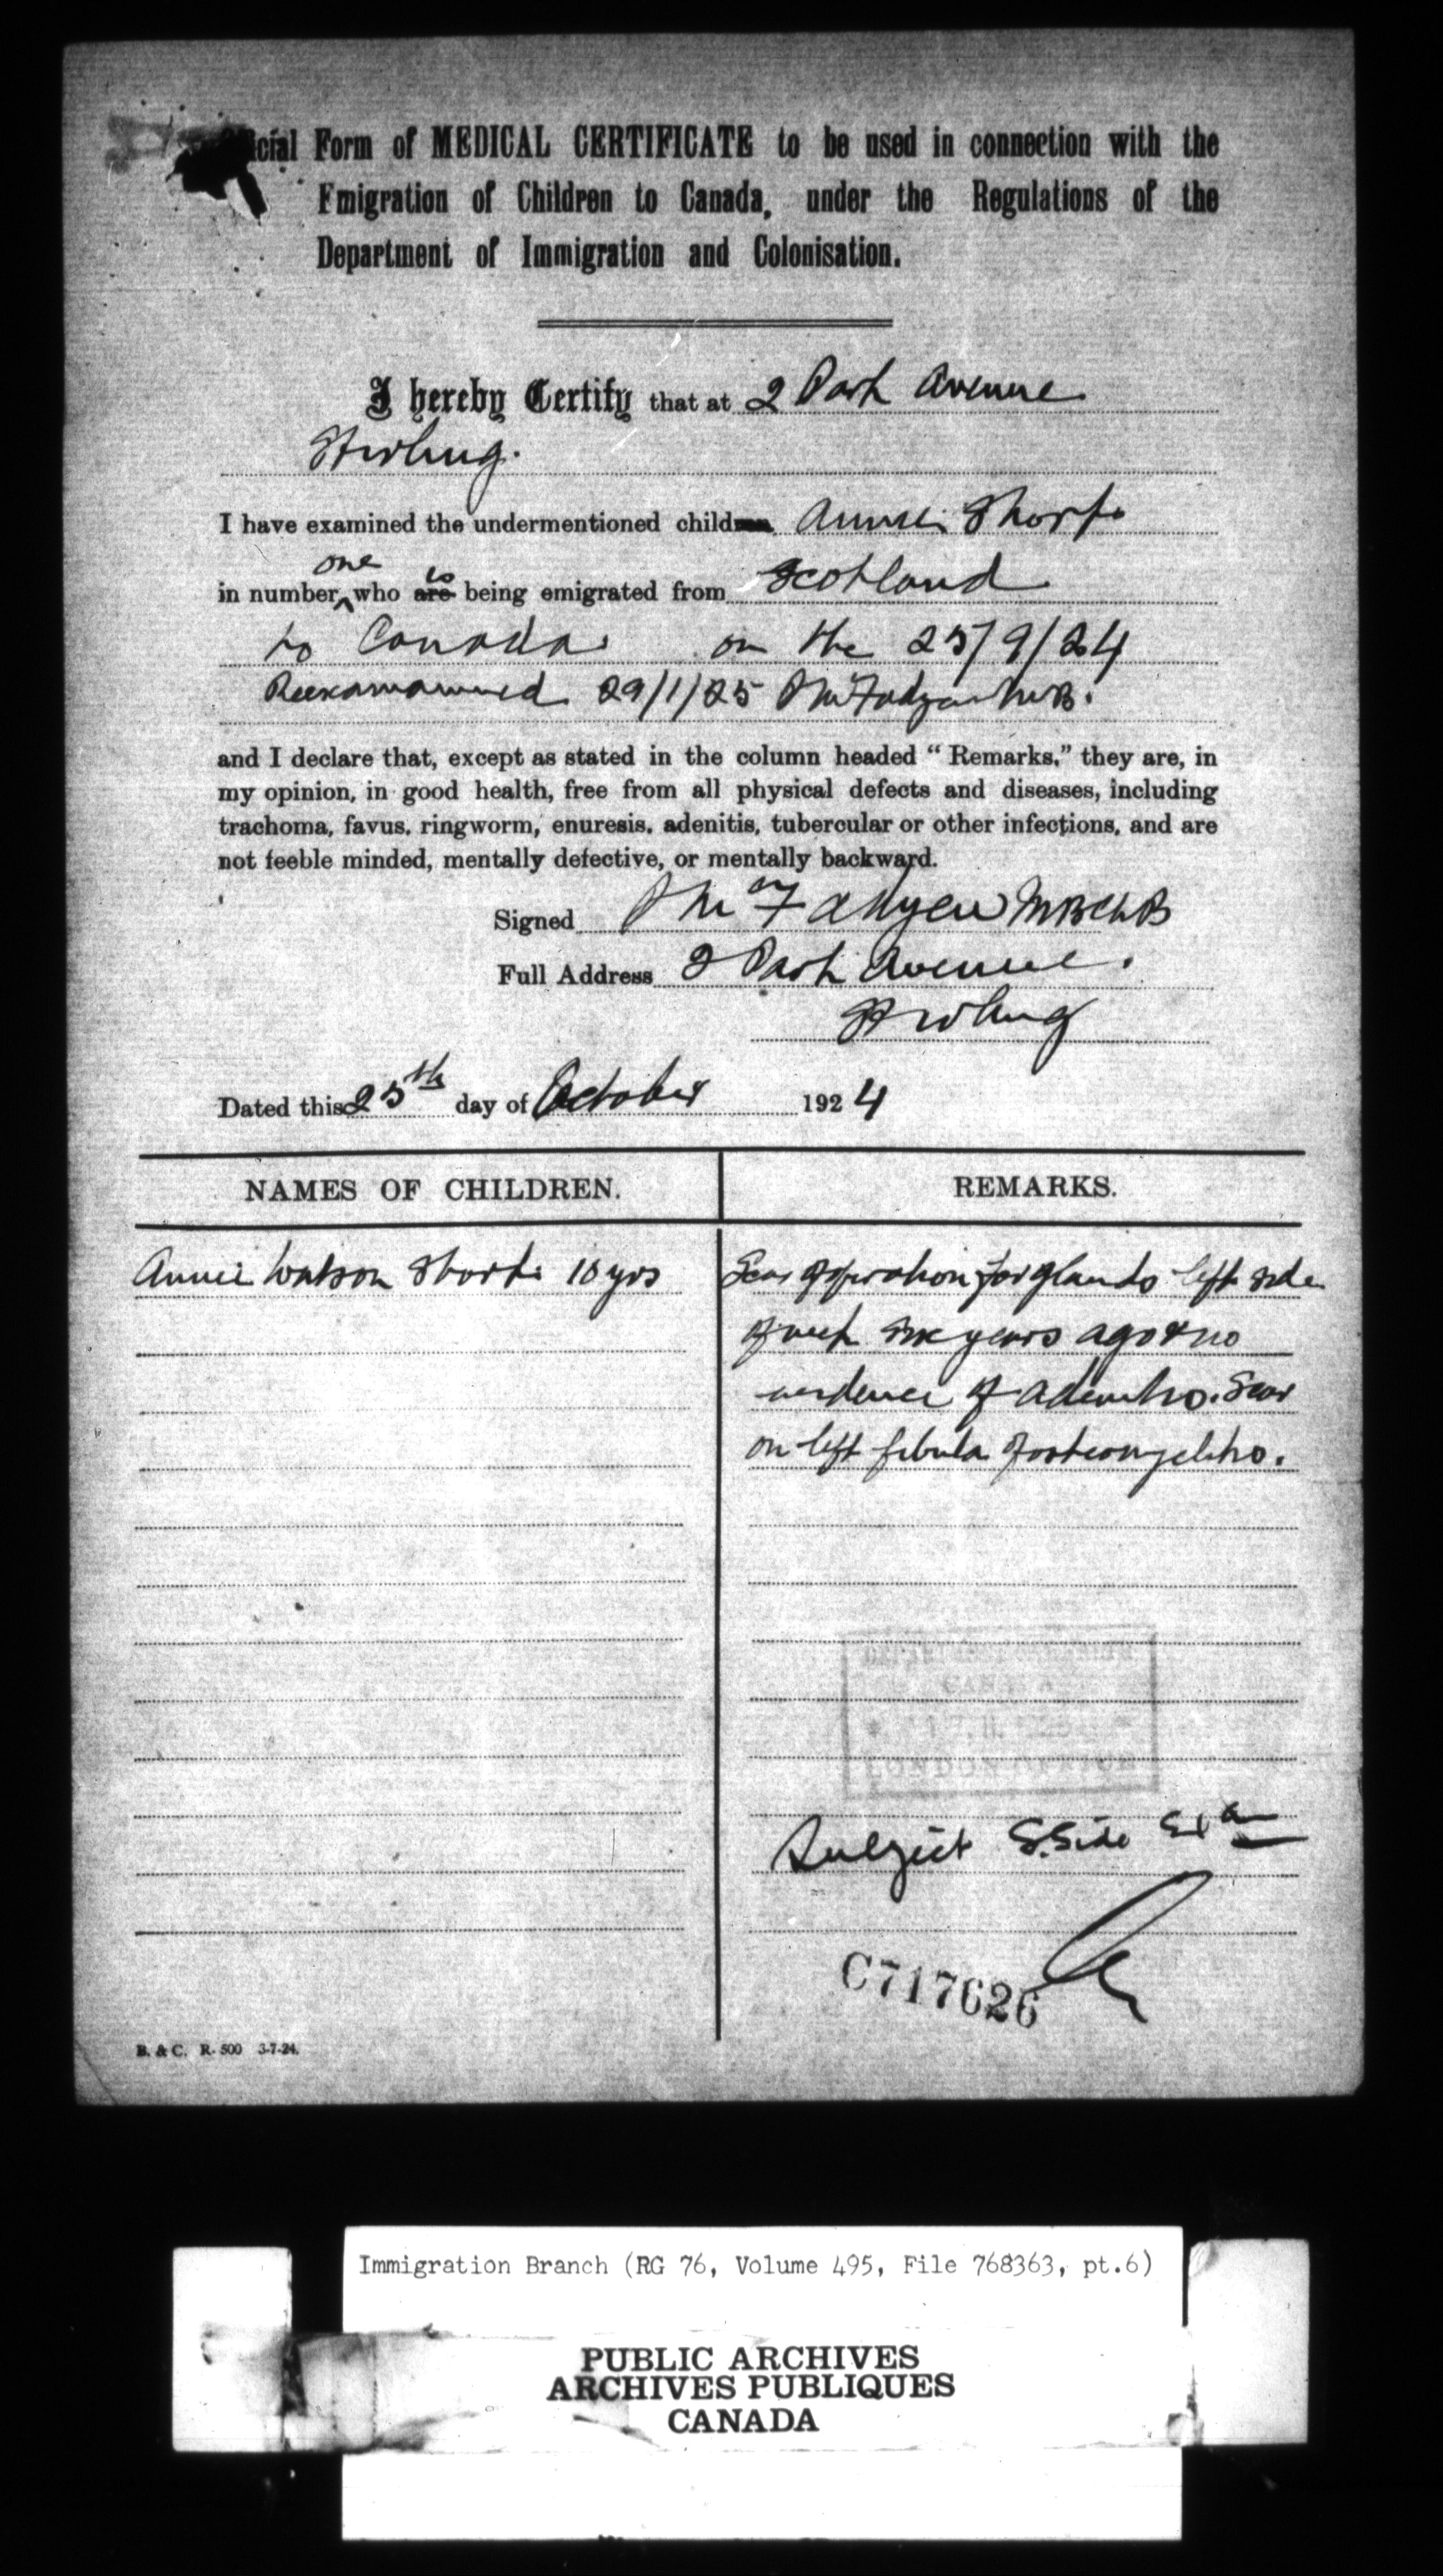 Official Form of MEDICAL CERTIFICATE to be used in connection with the
Emigration of Children to Canada, under the Regulations of the
Department of Immigration and Colonisation.
I hereby Certify that at 2 Park Avenue
Stirling.
I have examined the undermentioned children Annie Short
one is
in number who are being emigrated from Scotland
to Canada on the 25/9/24
Reexamained 29/1/25 McFadyen M.B.
and I declare that, except as stated in the column headed “ Remarks,” they are, in
my opinion, in good health, free from all physical defects and diseases, including
trachoma, favus, ringworm, enuresis, adenitis, tubercular or other infections, and are
not feeble minded, mentally defective, or mentally backward.
Signed McFadyen MBChB
Full Address 2 Park Avenue.
Stirling
Dated this 25th day of October 1924
NAMES OF CHILDREN. REMARKS.
Annie Watson Short 10 yrs Scar of operation for glands left side
of neck six years ago & no
evidence of adenitis. Scar
on left fibula of osteomyelitis.
CANADA
LONDON OFFICE
Subject S.Side Exam
C717626
B. & C. R. 500 3-7-24.
Immigration Branch (RG 76, Volume 495, File 768363, pt.6)
PUBLIC ARCHIVES
ARCHIVES PUBLIQUES
CANADA